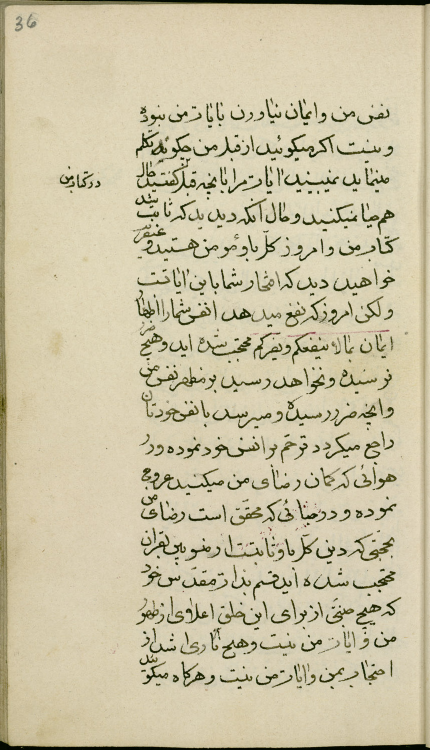 36
نفس من و ایمان نیاوردن بایات من نبوده
و نیست اگر میگوئید از قبل من چگونه تکلم
مینماید نمیبینید ایات مرا بانچه قبل گفتید حال
در کتاب من
هم حیا نمیکنید و حال آنکه دیدید که ثابت شد
کتاب من و امروز کل باو مؤمن هستید و عنقریب
خواهید دید که افتخار شما باین ایاتست
ولکن امروز که نفع میدهد انفس شما را اظهار
ایمان بما لا ینفعکم و یضرکم محتجب شده اید و هیچ ضر
نرسیده و نخواهد رسید بر مظهر نفس من
و انچه ضرر رسیده و میرسد بانفس خودتان
راجع میگردد ترحم بر انفس خود نموده و در
هوائی که گمان رضای من میکنید عروج
نموده و در رضائی که محقق است رضای من
بحجتی که دین کل باو ثابتست از رضوبین بقران
محتجب شده اید قسم بذات مقدس خود
که هیچ جنتی از برای این خلق اعلای از ظهور
من و ایات من نیست و هیچ ناری اشد از
احتجاب بمن و ایات من نیست و هرگاه میگوئید